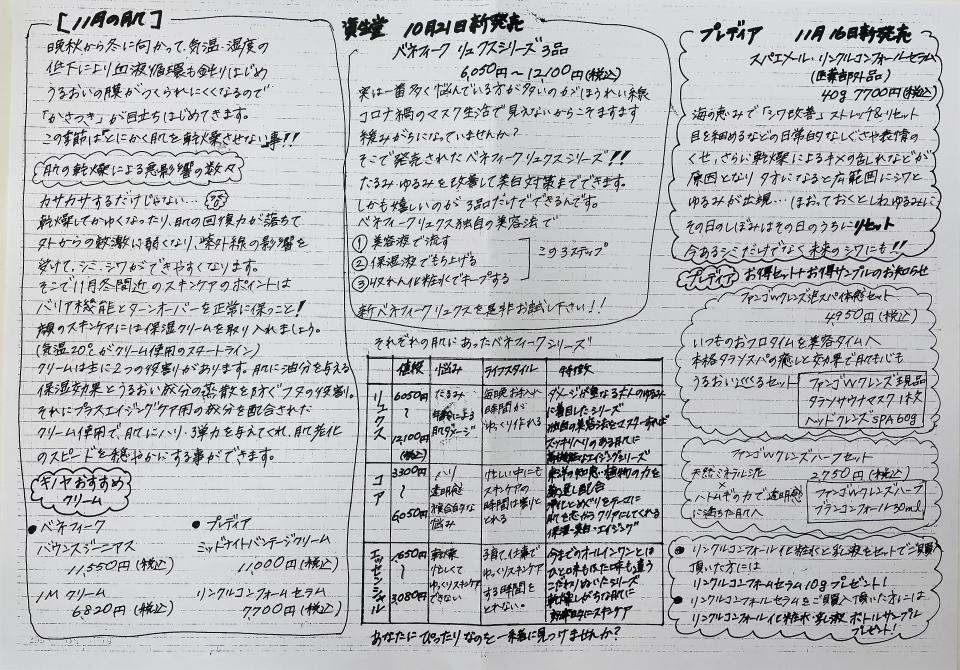 [11月の肌]
晩秋から冬に向かって、気温・湿度の
低下により血液循環も鈍りはじめ
うるおいの膜がつくられにくくなるので
「かさつき」が目立ちはじめてきます。
この季節は"とにかく肌を乾燥させない事!!
肌の乾燥による悪影響の数々
カサカサするだけじゃない…
乾燥してかゆくなったり、肌の回復力が落ちて
外からの刺激に弱くなり、紫外線の影響を
受けて、シミ、シワができやすくなります。
そこで11月冬間近のスキンケアのポイントは
バリア機能とターンオーバーを正常に保つこと!
夜のスキンケアには保湿クリームを取り入れましょう。
(気温20℃がクリーム使用のスタートライン)
クリームは主に2つの役割があります。肌に油分を与える
保湿効果とうるおい成分の蒸散を防ぐフタの役割。
それにプラスエイジングケア用の成分を配合された
クリーム使用で、肌にハリ・弾力を与えてくれ、肌老化
のスピードを穏やかにする事ができます。
キノヤおすすめ
クリーム
●ベネフィーク
バウンスジーニアス
11,550円(税込)
IMクリーム
6820円(税込)
●プレディア
ミッドナイトバンテージクリーム
11000円(税込)
リンクルコンフォームセラム
7700円(税込)
資生堂 10月21日新発売
ベネフィーク リュクスシリーズ3品
6,050円〜12,100円(税込)
実は一番多く悩んでいる方が多いのがほうれい線
コロナ禍のマスク生活で見えないからこそますます
緩みがちになっていませんか?
そこで発売されたベネフィークリュクスシリーズ!!
たるみ・ゆるみを改善して美白対策までできます。
しかも嬉しいのが3品だけでできるんです。
ベネフィークリュクス独自の美容法で
①美容液で流す
②保湿液でもち上げる
③リスれん化粧水でキープする
この3ステップ
新ベネフィークリュクスを是非お試し下さい!!
それぞれの肌にあったベネフィークシリーズ
値段 悩み ライフスタイル 特徴
リュクス
6050円
〜
12,100円
(税込)
たるみ
年齢による
肌ダメージ
毎晩お手入れ
時間が
ゆっくり作れる
ダメージが重なる大人のゆるみ
に着目したシリーズ
独自の美容法をマスターすれば
スッキリハリのある肌に
高機能なエイジングシリーズ
コア
3300円
〜
6,050円
ハリ
透明感
複合的な
悩み
忙しい中にも
スキンケアの
時間は割りと
とれる
東洋の知恵・植物の力を
厳選し配合
浄化とめぐりをテーマに
肌を芯からクリアにしてくれる
保湿・美白・エイジング
エッセンシャル
1,650円
〜
3,080円
乾燥
忙しくて
ゆっくりスキンケア
できない
子育て仕事で
ゆっくりスキンケア
する時間を
とれない。
今までのオールインワンとは
ひと味もふた味も違う
こだわりぬいたシリーズ
乾燥しがちな肌に
効率的にスキンケア
あなたにぴったりなのを一緒に見つけませんか?
プレディア 11月16日新発売
スパエメール・リンクルコンフォールセラム
(医薬部外品)
40g 7700円(税込)
海の恵みで「シワ改善」ストレッチ&リセット
目を細めるなどの日常的なしぐさや表情の
くせ、さらに乾燥によるキメの乱れなどが
原因となり タオルになると広範囲にシワと
ゆるみが出現…ほおっておくとしわ、ゆるみに
その日のしぼみはその日のうちにリセット
今あるシミだけでなく 未来のシワにも!!
プレディア お得セット+お得サンプルのお知らせ
ファンゴWクレンズ泥スパ体感セット
4950円(税込)
いつものおフロタイムを美容タイムへ
本格タラソスパの癒しと効果で肌も心も
うるおいつくセット
ファンゴWクレンズ現品
タラソサウナマスク1本
ヘッドクレンズSPA60g
ファンゴWクレンズハーブセット
2,750円(税込)
天然ミネラル泥
×
ハトムギの力で透明感
に満ちた肌へ
ファンゴWクレンズハーブ
ブランコンフォール30ml
●リンクルコンフォールイ化粧水と乳液をセットでご購入
頂いた方には
リンクルコンフォームセラム10gプレゼント!
●リンクルコンフォールセラムをご購入頂いた方には
リンクルコンフォールイ化粧水・乳液 ボトルサンプル
プレゼント!